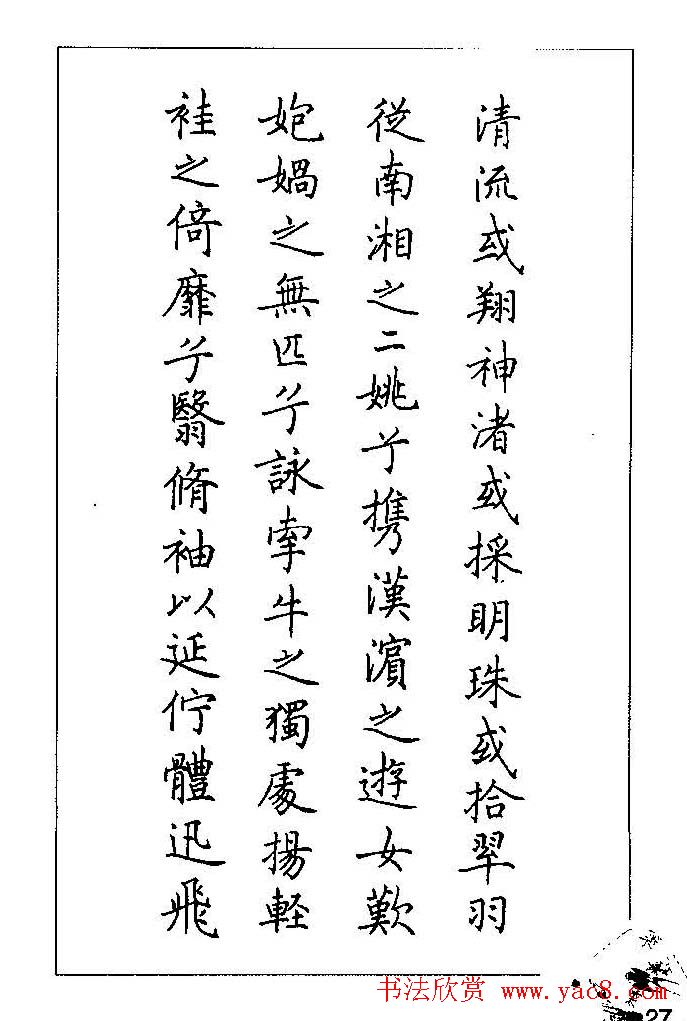 清流或翔神渚或採明珠或拾翠羽
從南湘之二姚兮携漢濱之遊女歎
姽媧之無匹兮詠牽牛之獨處揚軽
袿之倚靡兮翳脩袖以延佇體迅飛
书法欣赏 www.yac8.com
27